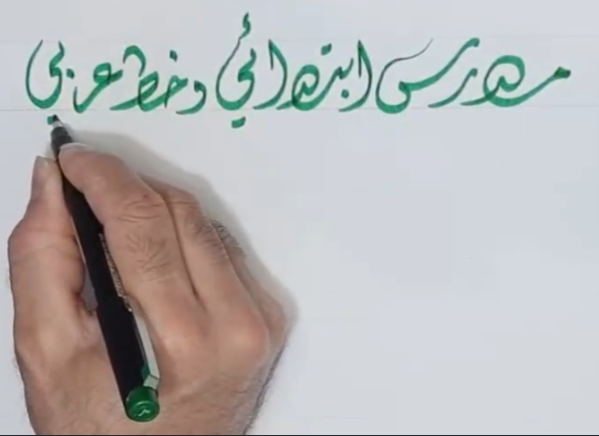 مدرس ابتدائي وخط عربي